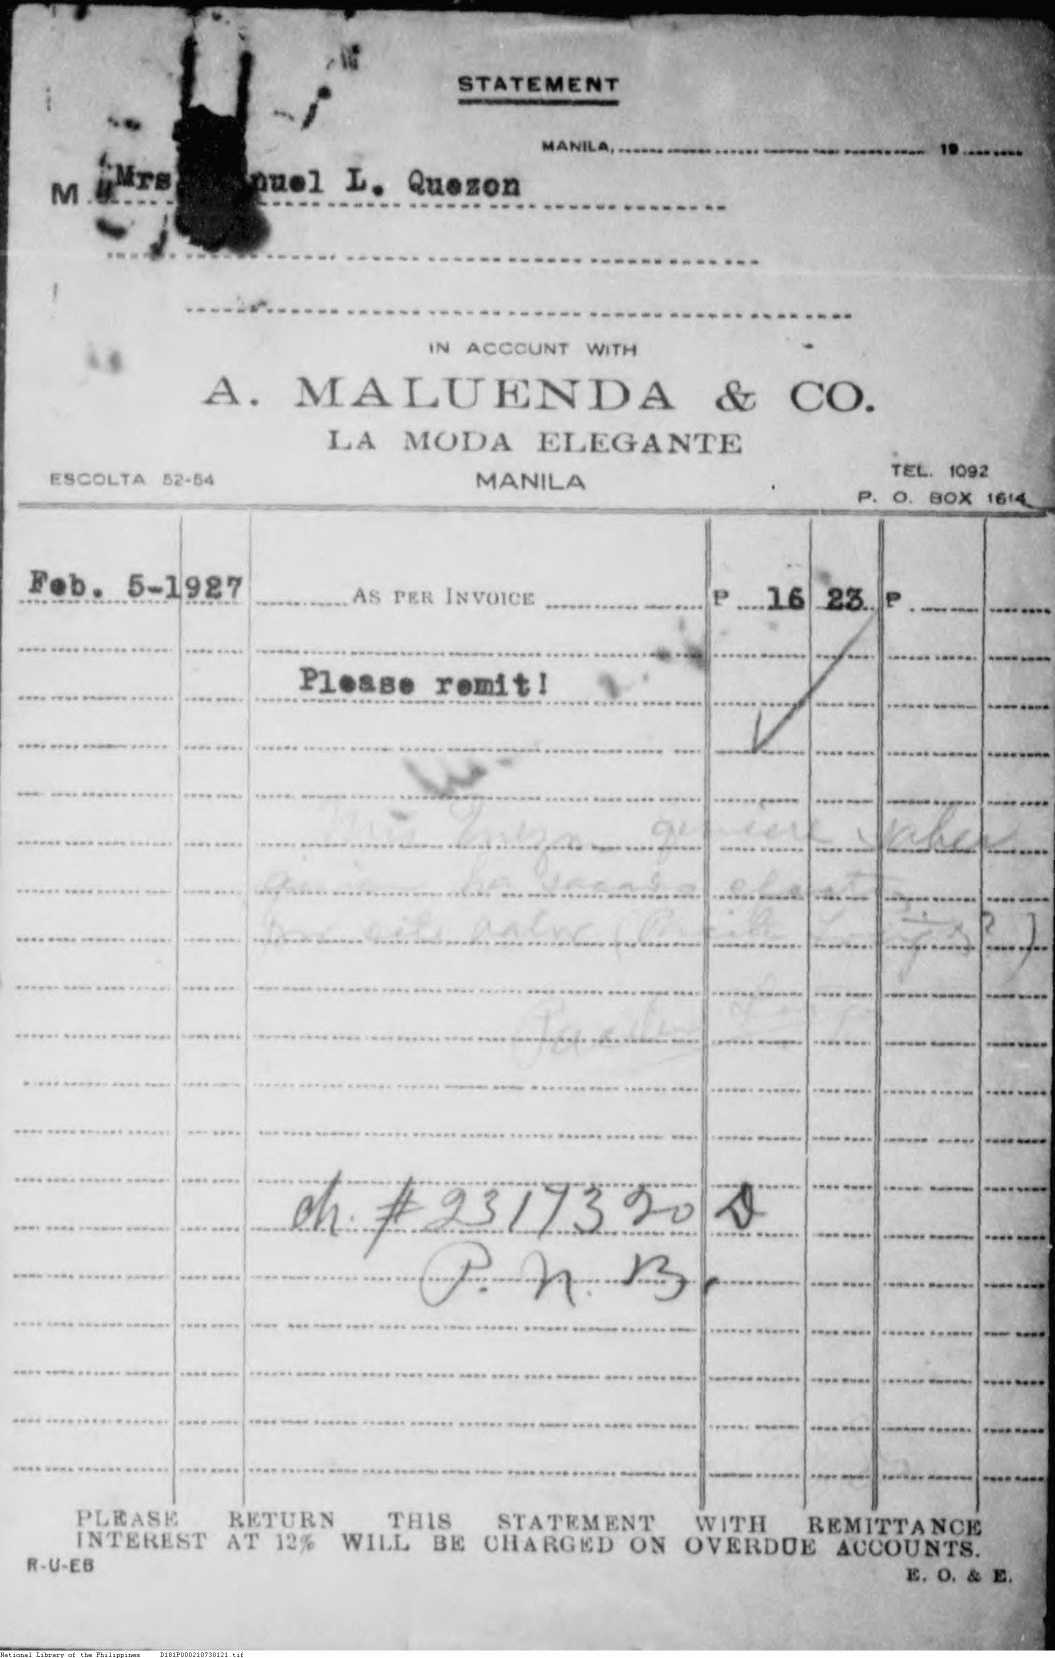 STATEMENT
MANILA, 19
M Mrs nuel L. Quezon
IN ACCOUNT WITH
A. MALUENDA & CO.
LA MODA ELEGANTE
ESCOLTA 52-54
MANILA
TEL. 1092
P. O. BOX 1614
Feb. 5-1927 AS PER INVOICE P 16 23 P
Please remit!
quiere saber
ch. # 2317320 D
P. N. B.
PLEASE RETURN THIS STATEMENT WITH REMITTANCE
INTEREST AT 12% WILL BE CHARGED ON OVERDUE ACCOUNTS.
R-U-EB
E. O. & E.
National Library of the Philippines D181P000210738121.tif